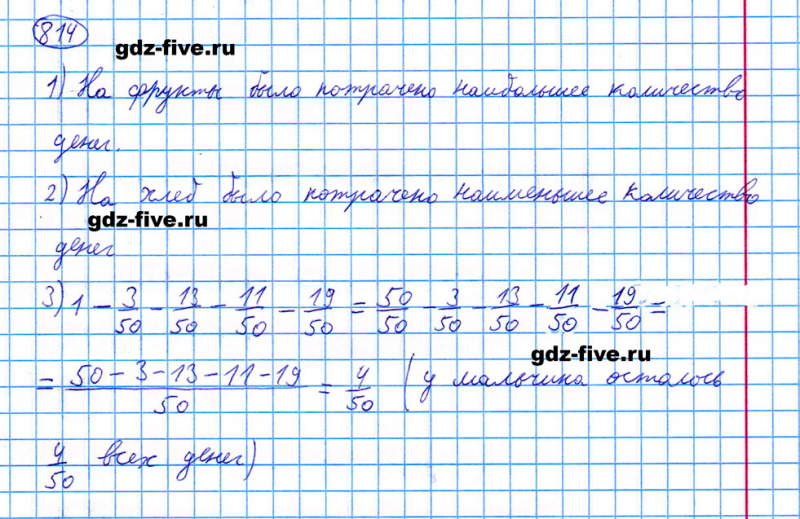 814
gdz-five.ru
1) На фрукты было потрачено наибольшее количество
денег.
2) На хлеб было потрачено наименьшее количество
gdz-five.ru
денег
3) 1 - 3/50 - 13/50 - 11/50 - 19/50 = 50/50 - 3/50 - 13/50 - 11/50 - 19/50 =
gdz-five.ru
= (50 - 3 - 13 - 11 - 19)/50 = 4/50 (у мальчика осталось
4/50 всех денег)